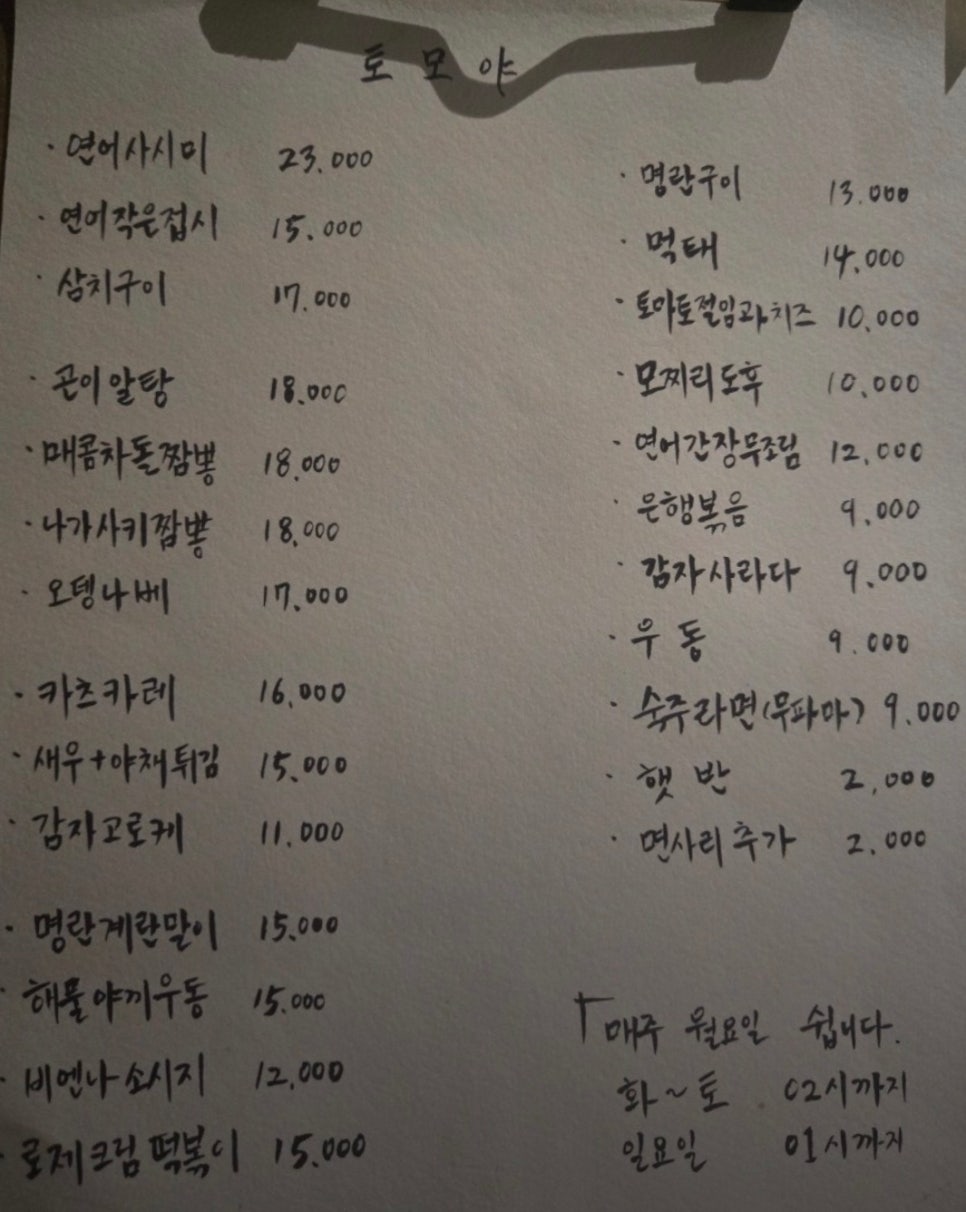 토모야
· 연어사시미 23.000
· 연어작은접시 15.000
· 삼치구이 17.000
· 곤이알탕 18.000
· 매콤차돌짬뽕 18.000
· 나가사키짬뽕 18.000
· 오뎅나베 17.000
· 카츠카레 16.000
· 새우+야채튀김 15.000
· 감자고로케 11.000
· 명란계란말이 15.000
· 해물야끼우동 15.000
· 비엔나소시지 12.000
· 로제크림떡볶이 15.000
· 명란구이 13.000
· 먹태 14.000
· 토마토절임과치즈 10.000
· 모찌리도후 10.000
· 연어간장무조림 12.000
· 은행볶음 9.000
· 감자사라다 9.000
· 우동 9.000
· 숙주라면(무파마) 9.000
· 햇반 2.000
· 면사리추가 2.000
매주 월요일 쉽니다.
화~토 02시까지
일요일 01시까지